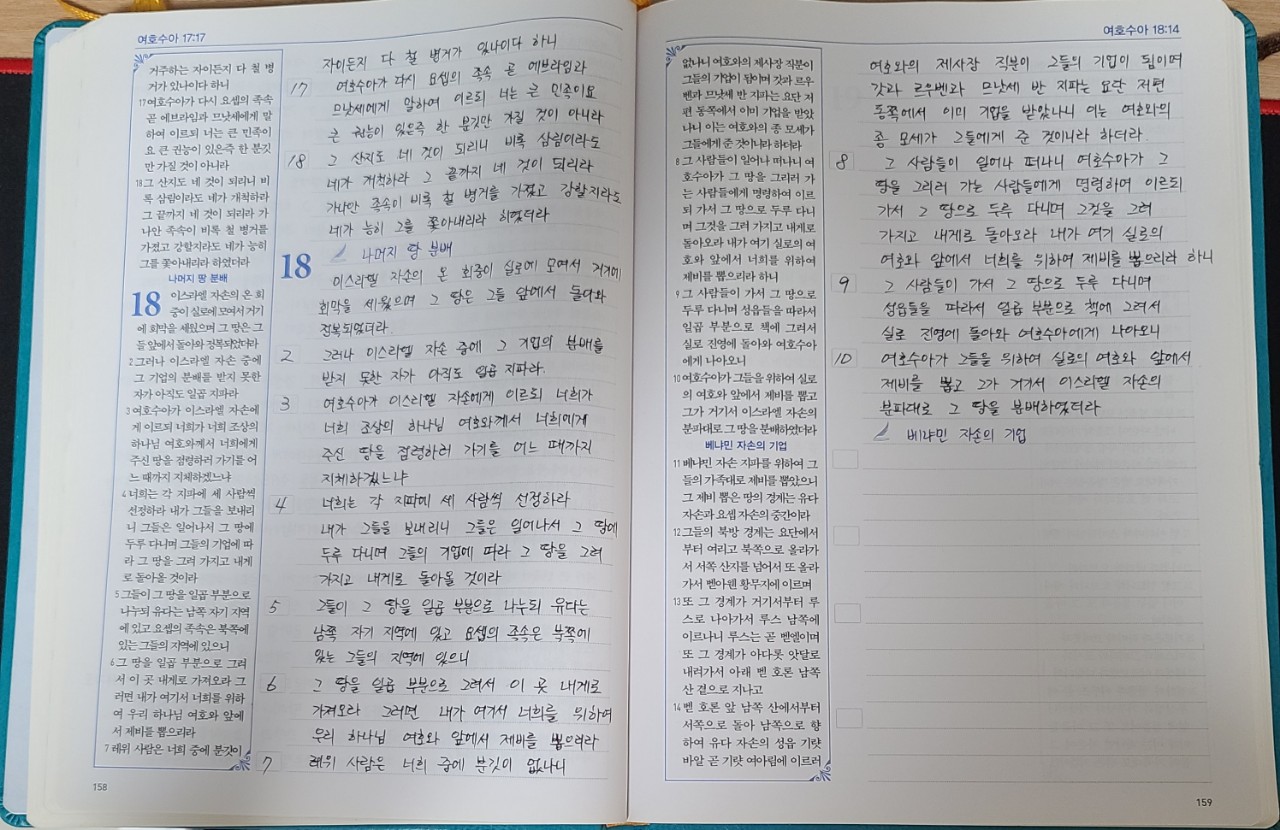 여호수아 17:17
거주하는 자이든지 다 철 병
거가 있나이다 하니
17 여호수아가 다시 요셉의 족속
곧 에브라임과 므낫세에게 말
하여 이르되 너는 큰 민족이
요 큰 권능이 있은즉 한 분깃
만 가질 것이 아니라
18 그 산지도 네 것이 되리니 비
록 삼림이라도 네가 개척하라
그 끝까지 네 것이 되리라 가
나안 족속이 비록 철 병거를
가졌고 강할지라도 네가 능히
그를 쫓아내리라 하였더라
나머지 땅 분배
18 이스라엘 자손의 온 회
중이 실로에 모여서 거기
에 회막을 세웠으며 그 땅은 그
들 앞에서 돌아와 정복되었더라
2 그러나 이스라엘 자손 중에
그 기업의 분배를 받지 못한
자가 아직도 일곱 지파라
3 여호수아가 이스라엘 자손에
게 이르되 너희가 너희 조상의
하나님 여호와께서 너희에게
주신 땅을 점령하러 가기를 어
느 때까지 지체하겠느냐
4 너희는 각 지파에 세 사람씩
선정하라 내가 그들을 보내리
니 그들은 일어나서 그 땅에
두루 다니며 그들의 기업에 따
라 그 땅을 그려 가지고 내게
로 돌아올 것이라
5 그들이 그 땅을 일곱 부분으로
나누되 유다는 남쪽 자기 지역
에 있고 요셉의 족속은 북쪽에
있는 그들의 지역에 있으니
6 그 땅을 일곱 부분으로 그려
서 이 곳 내게로 가져오라 그
러면 내가 여기서 너희를 위하
여 우리 하나님 여호와 앞에
서 제비를 뽑으리라
7 레위 사람은 너희 중에 분깃이
158
자이든지 다 철 병거가 있나이다 하니
17 여호수아가 다시 요셉의 족속 곧 에브라임과
므낫세에게 말하여 이르되 너는 큰 민족이요
큰 권능이 있은즉 한 분깃만 가질 것이 아니라
18 그 산지도 네 것이 되리니 비록 삼림이라도
네가 개척하라 그 끝까지 네 것이 되리라
가나안 족속이 비록 철 병거를 가졌고 강할지라도
네가 능히 그를 쫓아내리라 하였더라
18 나머지 땅 분배
이스라엘 자손의 온 회중이 실로에 모여서 거기에
회막을 세웠으며 그 땅은 그들 앞에서 돌아와
정복되었더라
2 그러나 이스라엘 자손 중에 그 기업의 분배를
받지 못한 자가 아직도 일곱 지파라.
3 여호수아가 이스라엘 자손에게 이르되 너희가
너희 조상의 하나님 여호와께서 너희에게
주신 땅을 점령하러 가기를 어느 때까지
지체하겠느냐
4 너희는 각 지파에 세 사람씩 선정하라
내가 그들을 보내리니 그들은 일어나서 그 땅에
두루 다니며 그들의 기업에 따라 그 땅을 그려
가지고 내게로 돌아올 것이라
5 그들이 그 땅을 일곱 부분으로 나누되 유다는
남쪽 자기 지역에 있고 요셉의 족속은 북쪽에
있는 그들의 지역에 있으니
6 그 땅을 일곱 부분으로 그려서 이 곳 내게로
가져오라 그러면 내가 여기서 너희를 위하여
우리 하나님 여호와 앞에서 제비를 뽑으리라
7 레위 사람은 너희 중에 분깃이 없나니
여호수아 18:14
없나니 여호와의 제사장 직분이
그들의 기업이 됨이며 갓과 르우
벤과 므낫세 반 지파는 요단 저
편 동쪽에서 이미 기업을 받았
나니 이는 여호와의 종 모세가
그들에게 준 것이니라 하더라
8 그 사람들이 일어나 떠나니 여
호수아가 그 땅을 그리러 가
는 사람들에게 명령하여 이르
되 가서 그 땅으로 두루 다니
며 그것을 그려 가지고 내게로
돌아오라 내가 여기 실로의 여
호와 앞에서 너희를 위하여
제비를 뽑으리라 하니
9 그 사람들이 가서 그 땅으로
두루 다니며 성읍들을 따라서
일곱 부분으로 책에 그려서
실로 진영에 돌아와 여호수아
에게 나아오니
10 여호수아가 그들을 위하여 실로
의 여호와 앞에서 제비를 뽑고
그가 거기서 이스라엘 자손의
분파대로 그 땅을 분배하였더라
베냐민 자손의 기업
11 베냐민 자손 지파를 위하여 그
들의 가족대로 제비를 뽑았으니
그 제비 뽑은 땅의 경계는 유다
자손과 요셉 자손의 중간이라
12 그들의 북방 경계는 요단에서
부터 여리고 북쪽으로 올라가
서 서쪽 산지를 넘어서 또 올라
가서 벧아웬 황무지에 이르며
13 또 그 경계가 거기서부터 루
스로 나아가서 루스 남쪽에
이르나니 루스는 곧 벧엘이며
또 그 경계가 아다롯 앗달로
내려가서 아래 벧 호론 남쪽
산 곁으로 지나고
14 벧 호론 앞 남쪽 산에서부터
서쪽으로 돌아 남쪽으로 향
하여 유다 자손의 성읍 기럇
바알 곧 기럇 여아림에 이르러
여호와의 제사장 직분이 그들의 기업이 됨이며
갓과 르우벤과 므낫세 반 지파는 요단 저편
동쪽에서 이미 기업을 받았나니 이는 여호와의
종 모세가 그들에게 준 것이니라 하더라.
8 그 사람들이 일어나 떠나니 여호수아가 그
땅을 그리러 가는 사람들에게 명령하여 이르되
가서 그 땅으로 두루 다니며 그것을 그려
가지고 내게로 돌아오라 내가 여기 실로의
여호와 앞에서 너희를 위하여 제비를 뽑으리라 하니
9 그 사람들이 가서 그 땅으로 두루 다니며
성읍들을 따라서 일곱 부분으로 책에 그려서
실로 진영에 돌아와 여호수아에게 나아오니
10 여호수아가 그들을 위하여 실로의 여호와 앞에서
제비를 뽑고 그가 거기서 이스라엘 자손의
분파대로 그 땅을 분배하였더라
베냐민 자손의 기업
159